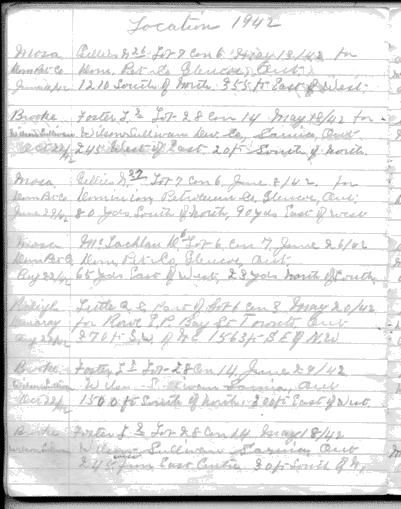 Location 1942
Mosa Gillies N 26 Lot 7 Con 6 May 13/42 for
Dom Pet Co Dom. Pet. Co Glencoe, Ont.
June 1210 South of North 355 ft East of West.
Brooke Foster L 2 Lot 28 Con 14 May 18/42 for
Wilson Sullivan Dev. Co, Sarnia, Ont
245 West of East 20 ft South of North.
Mosa Gillies N 27 Lot 7 Con 6, June 8/42. for
Dom Pet Co Dominion Petroleum Co, Glencoe, Ont.
June 80 yds South of North, 90 yds East of West
Mosa McLachlan D Lot 6, Con 7, June 26/42
Dom Pet Co Dom. Pet. Co, Glencoe, Ont.
Aug 65 yds East of West, 23 yds North of South.
Raleigh Little Part of Lot 1 Con 3 May 20/42
for Rowe Bay St Toronto Ont
Aug 270 ft S.W. of N.E. 1563 ft S.E of N.W
Brooke Foster L 2 Lot 28 Con 14, June 29/42
Wilson Sullivan Sarnia, Ont
Oct 1500 ft South of North 200 ft East of West.
Brooke Foster L 2 Lot 28 Con 14 May 18/42
Wilson Sullivan Sarnia, Ont
245 from East Centre 20 ft South of N.